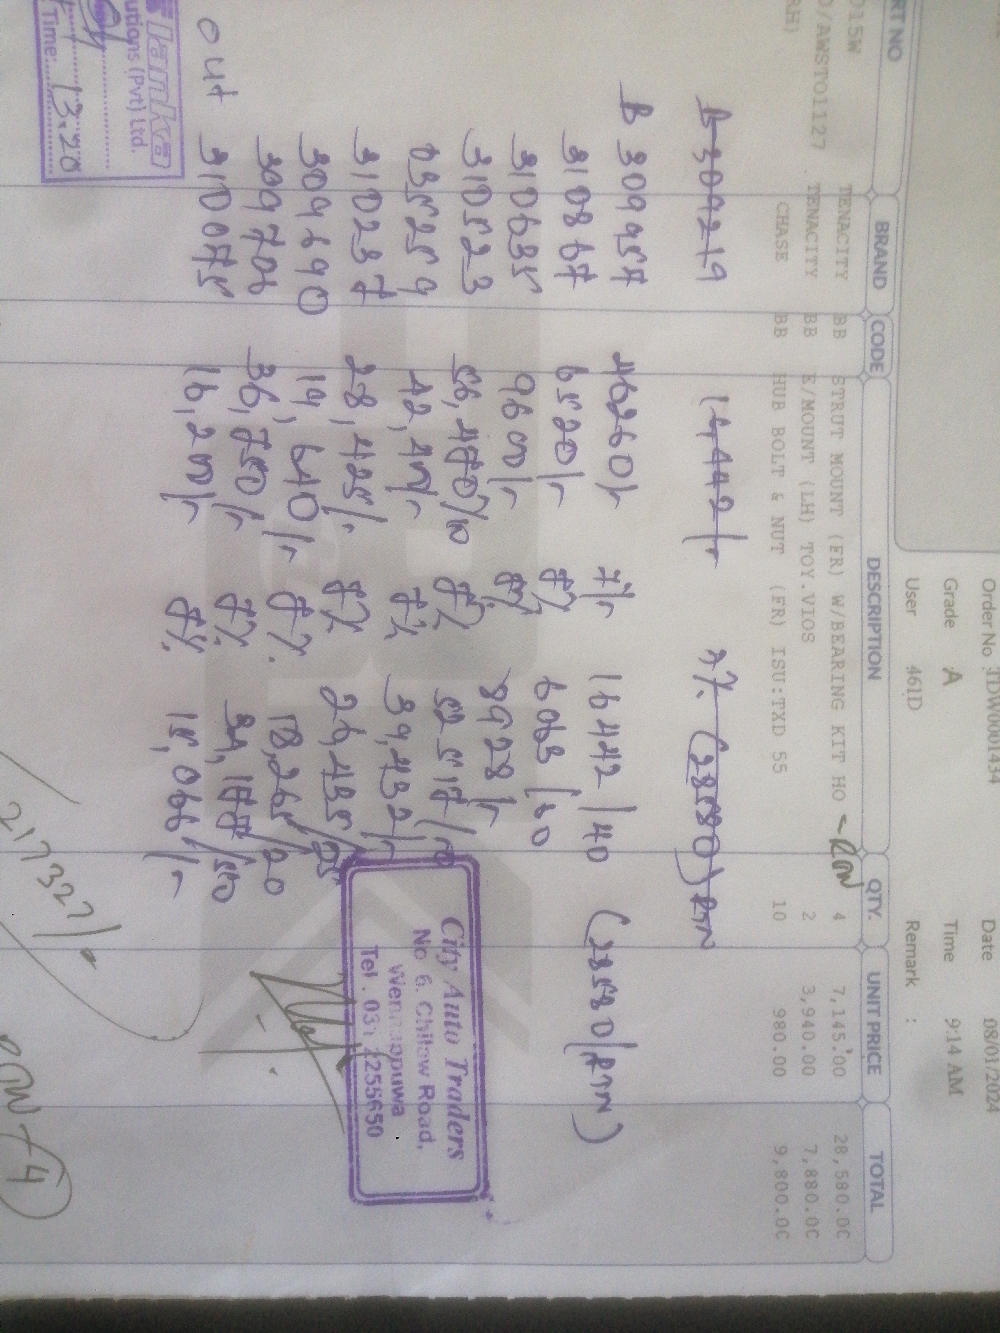 Order No : JDW001434 Date 08/01/2024
Grade : A Time 9:14 AM
User 461D Remark :
RT NO BRAND CODE DESCRIPTION QTY. UNIT PRICE TOTAL
D15W TENACITY BB STRUT MOUNT (FR) W/BEARING KIT HO 4 7,145.00 28,580.0C
D/AWSTO1127 TENACITY BB E/MOUNT (LH) TOY.VIOS 2 3,940.00 7,880.0C
RH) CHASE BB HUB BOLT & NUT (FR) ISU:TXD 55 10 980.00 9,800.0C
B 309219 7% (28580) RTN
B 309957 46260/- 7% 16442/40 (28580/RTN)
310867 6520/- 7% 6063/60
310635 9600/- 7% 8928/-
310523 56,470/10 7% 52517/10
035259 42,400/- 7% 39,432/-
310237 28,425/- 7% 26,435/25
309690 19,640/- 7% 18,265/20
309706 36,750/- 7% 34,177/50
out 310075 16,200/- 7% 15,066/-
217327/-
City Auto Traders
No 6, Chilaw Road,
Wennappuwa
Tel : 031 2255650
lanka
utions (Pvt) Ltd.
Time: 13.20
4